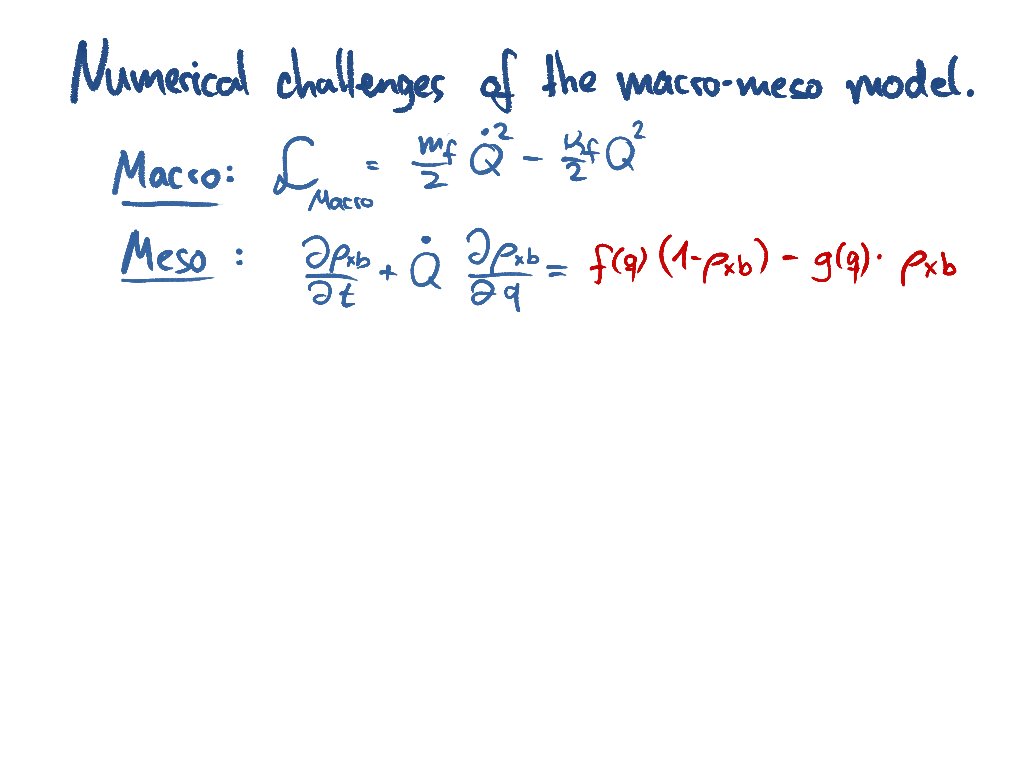 Numerical challenges of the macro-meso model.
Macro: ℒ_Macro = m_f/2 Q̇² - K_f/2 Q²
Meso: ∂ρ_xb/∂t + Q̇ ∂ρ_xb/∂q = f(q) (1-ρ_xb) - g(q) · ρ_xb